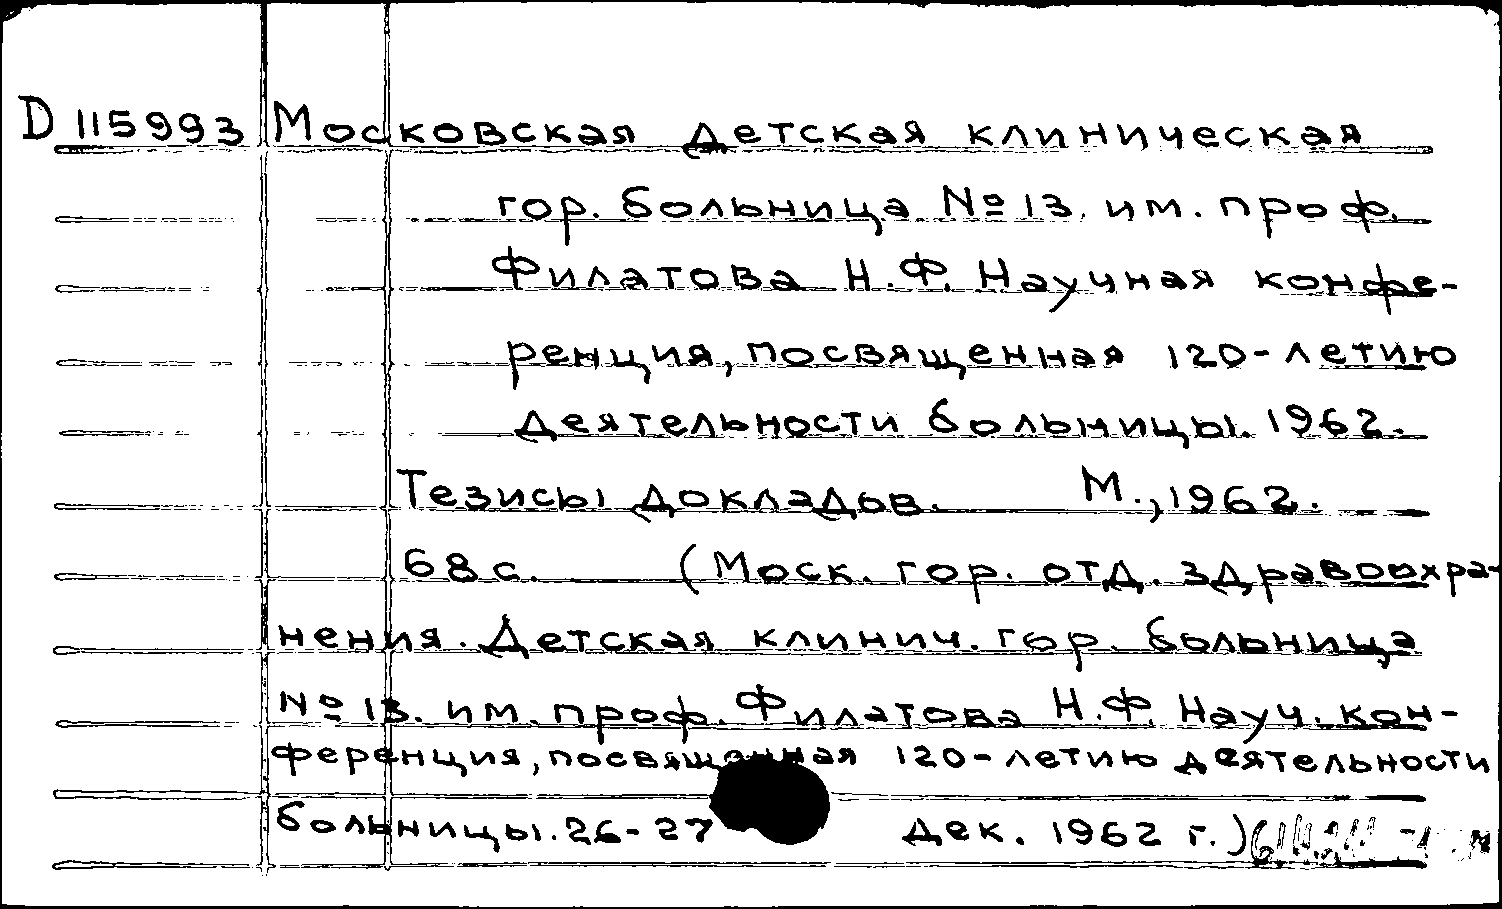 D 115993 Московская детская клиническая
гор. больница № 13. им. проф.
Филатова Н.Ф. Научная конфе-
ренция, посвященная 120-летию
деятельности больницы. 1962.
Тезисы докладов. М., 1962.
68 с. (Моск. гор. отд. здравоохра-
нения. Детская клинич. гор. больница
№ 13. им. проф. Филатова Н.Ф. Науч. кон-
ференция, посвященная 120-летию деятельности
больницы. 26-27 дек. 1962 г.)